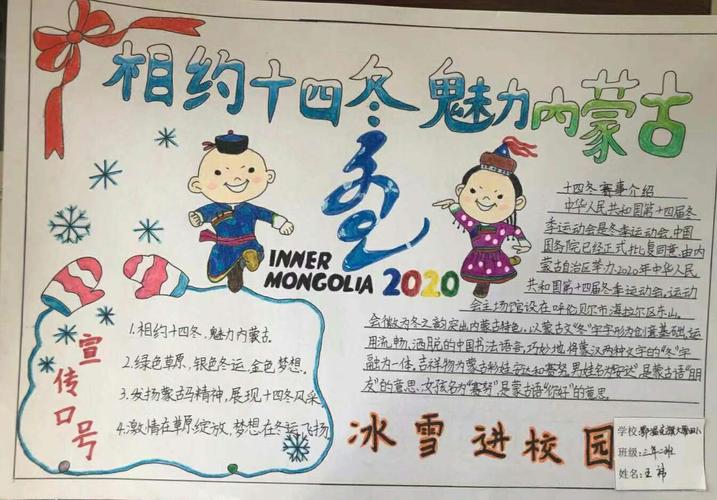 相约十四冬 魅力内蒙古
INNER
MONGOLIA 2020
十四冬赛事介绍
中华人民共和国第十四届冬
季运动会是冬季运动会,中国
国务院已经正式批复同意,由内
蒙古自治区举办,2020年中华人民
共和国第十四届冬季运动会,运动
会主场馆设在呼伦贝尔市海拉尔区东山。
会徽为冬之韵突出内蒙古特色,以蒙古文"冬"字字形为创意基础,运
用流畅、洒脱的中国书法语言,巧妙地将蒙汉两种文字的"冬"字
融为一体。吉祥物为蒙古娃娃安达和赛努,男娃名为"安达"是蒙古语"朋
友"的意思,女孩名为"赛努"是蒙古语"你好"的意思
宣传口号
1.相约十四冬,魅力内蒙古.
2.绿色草原,银色冬运,金色梦想.
3.发扬蒙古马精神,展现十四冬风采
4.激情在草原绽放,梦想在冬运飞扬
冰雪进校园
学校:
班级:三年二班
姓名:王祎